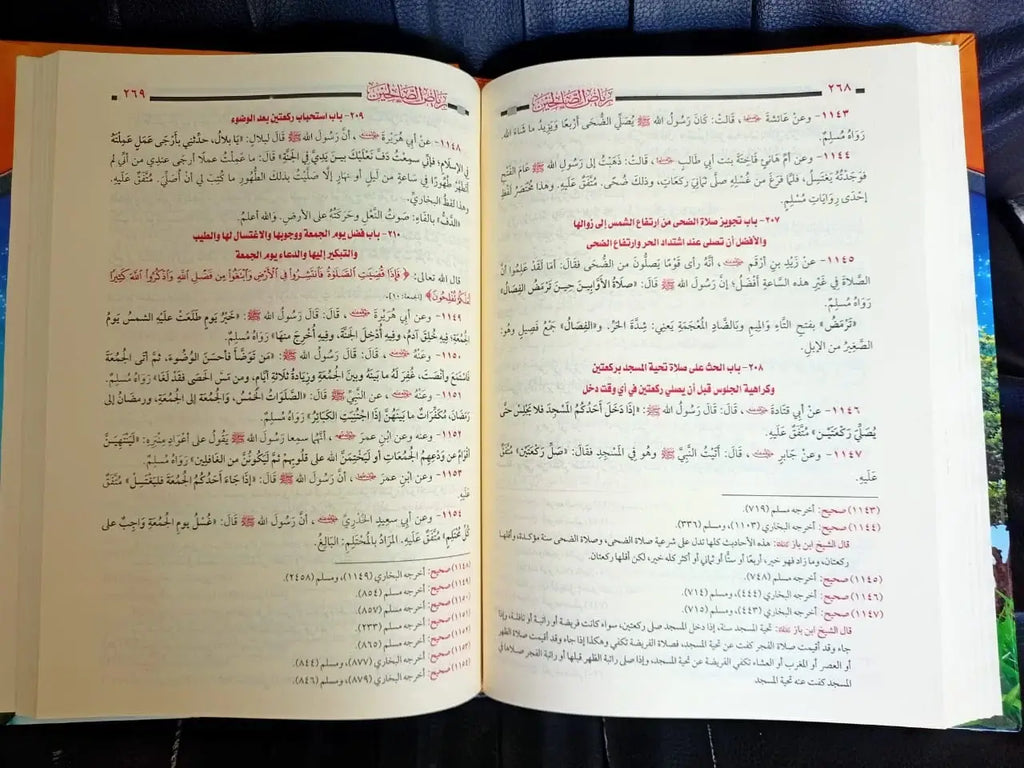 ٢٦٨
رياض الصالحين
١١٤٣- وعن عائشة، قالت: كَانَ رَسُولُ الله ﷺ يُصَلِّي الضُّحَى أَرْبَعًا وَيَزِيدُ ما شَاءَ الله.
رَوَاهُ مُسْلِمٌ.
١١٤٤- وعن أم هانئٍ فَاخِتَةَ بنت أبي طالبٍ، قالَتْ: ذَهَبْتُ إلى رَسُولِ الله ﷺ عَامَ الفَتْحِ
فَوَجَدْتُهُ يَغْتَسِلُ، فَلمَّا فَرَغَ من غُسْلِهِ صلَّى ثَمَانِيَ ركَعَاتٍ، وذلك ضُحًى. متَّفَقٌ عَلَيهِ. وهذا مُخْتَصَرُ لَفظِ
إحْدَى رِوَايَاتِ مُسْلِمٍ.
٢٠٧- باب تجويز صلاة الضحى من ارتفاع الشمس إلى زوالها
والأفضل أن تصلى عند اشتداد الحر وارتفاع الضحى
١١٤٥- عنْ زَيْدِ بنِ أرْقَم، أنَّهُ رأى قَوْمًا يُصَلُّونَ من الضُّحَى فقَالَ: أمَا لَقَدْ عَلِمُوا أنَّ
الصَّلاةَ فِي غَيْرِ هذه السَّاعةِ أفْضَلُ؛ إنَّ رسولَ الله ﷺ قَالَ: «صَلاةُ الأوَّابينَ حِينَ تَرْمَضُ الفِصَالُ»
رَوَاهُ مُسْلِمٌ.
«تَرْمَضُ» بفتحِ التَّاءِ والمِيمِ وبالضَّادِ المُعْجَمَةِ يَعْنِي: شِدَّةَ الحَرِّ. و«الفِصَالُ» جَمْعُ فَصِيلٍ وَهُوَ:
الصَّغِيرُ مِنَ الإبلِ.
٢٠٨- باب الحث على صلاة تحية المسجد بركعتين
وكراهية الجلوس قبل أن يصلي ركعتين في أي وقت دخل
١١٤٦- عنْ أبي قتادَةَ، قَالَ: قَالَ رسُولُ الله ﷺ: «إذَا دَخَلَ أحَدُكُمُ المَسْجِدَ فَلا يَجْلِسْ حتَّى
يُصَلِّيَ رَكْعَتَيْنِ» مُتَّفَقٌ عَلَيْهِ.
١١٤٧- وعنْ جَابِرٍ، قَالَ: أَتَيْتُ النَّبِيَّ ﷺ وهُو فِي المَسْجِدِ فقَالَ: «صَلِّ رَكْعَتَيْنِ» مُتَّفَقٌ
عَلَيهِ.
(١١٤٣) صحيح: أخرجه مسلم (٧١٩).
(١١٤٤) صحيح: أخرجه البخاري (١١٠٣)، ومسلم (٣٣٦).
قال الشيخ ابن باز: هذه الأحاديث كلها تدل على شرعية صلاة الضحى، وصلاة الضحى سنة مؤكدة، وأقلها
ركعتان، وما زاد فهو خير، أربعًا أو ستًّا أو ثماني أو أكثر كله خير، لكن أقلها ركعتان.
(١١٤٥) صحيح: أخرجه مسلم (٧٤٨).
(١١٤٦) صحيح: أخرجه البخاري (٤٤٤)، ومسلم (٧١٤).
(١١٤٧) صحيح: أخرجه البخاري (٤٤٣)، ومسلم (٧١٥).
قال الشيخ ابن باز: تحية المسجد سنة، إذا دخل المسجد صلى ركعتين، سواء كانت فريضة أو راتبة أو نافلة، وإذا
جاء وقد أقيمت صلاة الفجر كفت عن تحية المسجد، فصلاة الفريضة تكفي وهكذا إذا جاء وقد أقيمت صلاة الظهر
أو العصر أو المغرب أو العشاء تكفي الفريضة عن تحية المسجد، وإذا صلى راتبة الظهر قبلها أو راتبة الفجر صلاها في
المسجد كفت عنه تحية المسجد
رياض الصالحين
٢٦٩
٢٠٩- باب استحباب ركعتين بعد الوضوء
١١٤٨- عن أبي هُرَيْرةَ، أنَّ رَسُولَ الله ﷺ قَالَ لبِلالٍ: «يَا بلالُ، حدِّثني بِأَرْجَى عَمَلٍ عَمِلْتَهُ
في الإسلامِ؛ فإنِّي سمِعْتُ دَفَّ نَعْلَيْكَ بينَ يَدَيَّ في الجَنَّةِ» قَالَ: ما عَمِلْتُ عملًا أرجَى عندِي من أنِّي لم
أتَطَهَّرْ طُهُورًا في سَاعةٍ من ليلٍ أو نهارٍ إلَّا صَلَّيْتُ بذلك الطُّهُورِ ما كُتِبَ لي أنْ أصَلِّيَ. متَّفَقٌ عَلَيهِ.
وهذا لفظُ البخاريِّ.
«الدَّفُّ» بالفَاءِ: صَوتُ النَّعْلِ وحَرَكَتُهُ على الأرضِ. والله أعلمُ.
٢١٠- باب فضل يوم الجمعة ووجوبها والاغتسال لها والطيب
والتبكير إليها والدعاء يوم الجمعة
قال الله تعالى: ﴿فَإِذَا قُضِيَتِ ٱلصَّلَوٰةُ فَٱنتَشِرُوا۟ فِى ٱلْأَرْضِ وَٱبْتَغُوا۟ مِن فَضْلِ ٱللَّهِ وَٱذْكُرُوا۟ ٱللَّهَ كَثِيرًا
لَّعَلَّكُمْ تُفْلِحُونَ﴾ [الجمعة: ١٠].
١١٤٩- وعن أبي هُرَيْرةَ، قالَ: قَالَ رَسُولُ الله ﷺ: «خَيْرُ يومٍ طلَعَتْ علَيْهِ الشمسُ يَومُ
الجُمُعَةِ؛ فيهِ خُلِقَ آدَمُ، وفيهِ أُدْخِلَ الجَنَّةَ، وفيهِ أُخْرِجَ منها» رَوَاهُ مُسْلِمٌ.
١١٥٠- وعَنْهُ، قَالَ: قَالَ رَسُولُ الله ﷺ: «مَن تَوَضَّأَ فأحسَنَ الوُضُوءَ، ثمَّ أتَى الجُمُعَةَ
فَاسْتَمَعَ وأنْصَتَ، غُفِرَ لَهُ ما بَيْنَهُ وبينَ الجُمُعَةِ وزِيَادَةُ ثلاثَةِ أيَّامٍ، ومن مَسَّ الحَصَى فقَدْ لَغَا» رَوَاهُ مُسْلِمٌ.
١١٥١- وعَنْهُ، عن النَّبيِّ ﷺ قَالَ: «الصَّلَوَاتُ الخَمْسُ، والجُمُعَةُ إلى الجُمُعَةِ، ورمَضَانُ إلى
رَمَضَانَ، مُكَفِّرَاتٌ ما بَينَهُنَّ إذَا اجْتُنِبَتِ الكَبَائِرُ» رَوَاهُ مُسْلِمٌ.
١١٥٢- وعنه وعن ابن عمرَ، أنَّهُما سمِعَا رَسُولَ الله ﷺ يَقُولُ على أعْوَادِ مِنْبَرِهِ: «لَيَنْتَهِيَنَّ
أقْوَامٌ عن وَدْعِهِمُ الجُمُعَاتِ أو ليَخْتِمَنَّ الله على قُلُوبِهِمْ ثمَّ لَيَكُونُنَّ من الغافِلِينَ» رَوَاهُ مُسْلِمٌ.
١١٥٣- وعن ابْنِ عمَرَ، أنَّ رَسُولَ الله ﷺ قَالَ: «إذَا جَاءَ أحَدُكُمُ الجُمُعَةَ فليَغْتَسِلْ» مُتَّفَقٌ
عَلَيهِ.
١١٥٤- وعن أبي سعِيدٍ الخُدْرِيِّ، أنَّ رَسُولَ الله ﷺ قَالَ: «غُسْلُ يومِ الجُمُعَةِ وَاجِبٌ على
كُلِّ مُحْتَلِمٍ» مُتَّفَقٌ عَلَيهِ. المرَادُ بالمُحْتَلِمِ: البَالِغُ.
(١١٤٨) صحيح: أخرجه البخاري (١١٤٩)، ومسلم (٢٤٥٨).
(١١٤٩) صحيح: أخرجه مسلم (٨٥٤).
(١١٥٠) صحيح: أخرجه مسلم (٨٥٧).
(١١٥١) صحيح: أخرجه مسلم (٢٣٣).
(١١٥٢) صحيح: أخرجه مسلم (٨٦٥).
(١١٥٣) صحيح: أخرجه البخاري (٨٧٧)، ومسلم (٨٤٤).
(١١٥٤) صحيح: أخرجه البخاري (٨٧٩)، ومسلم (٨٤٦).